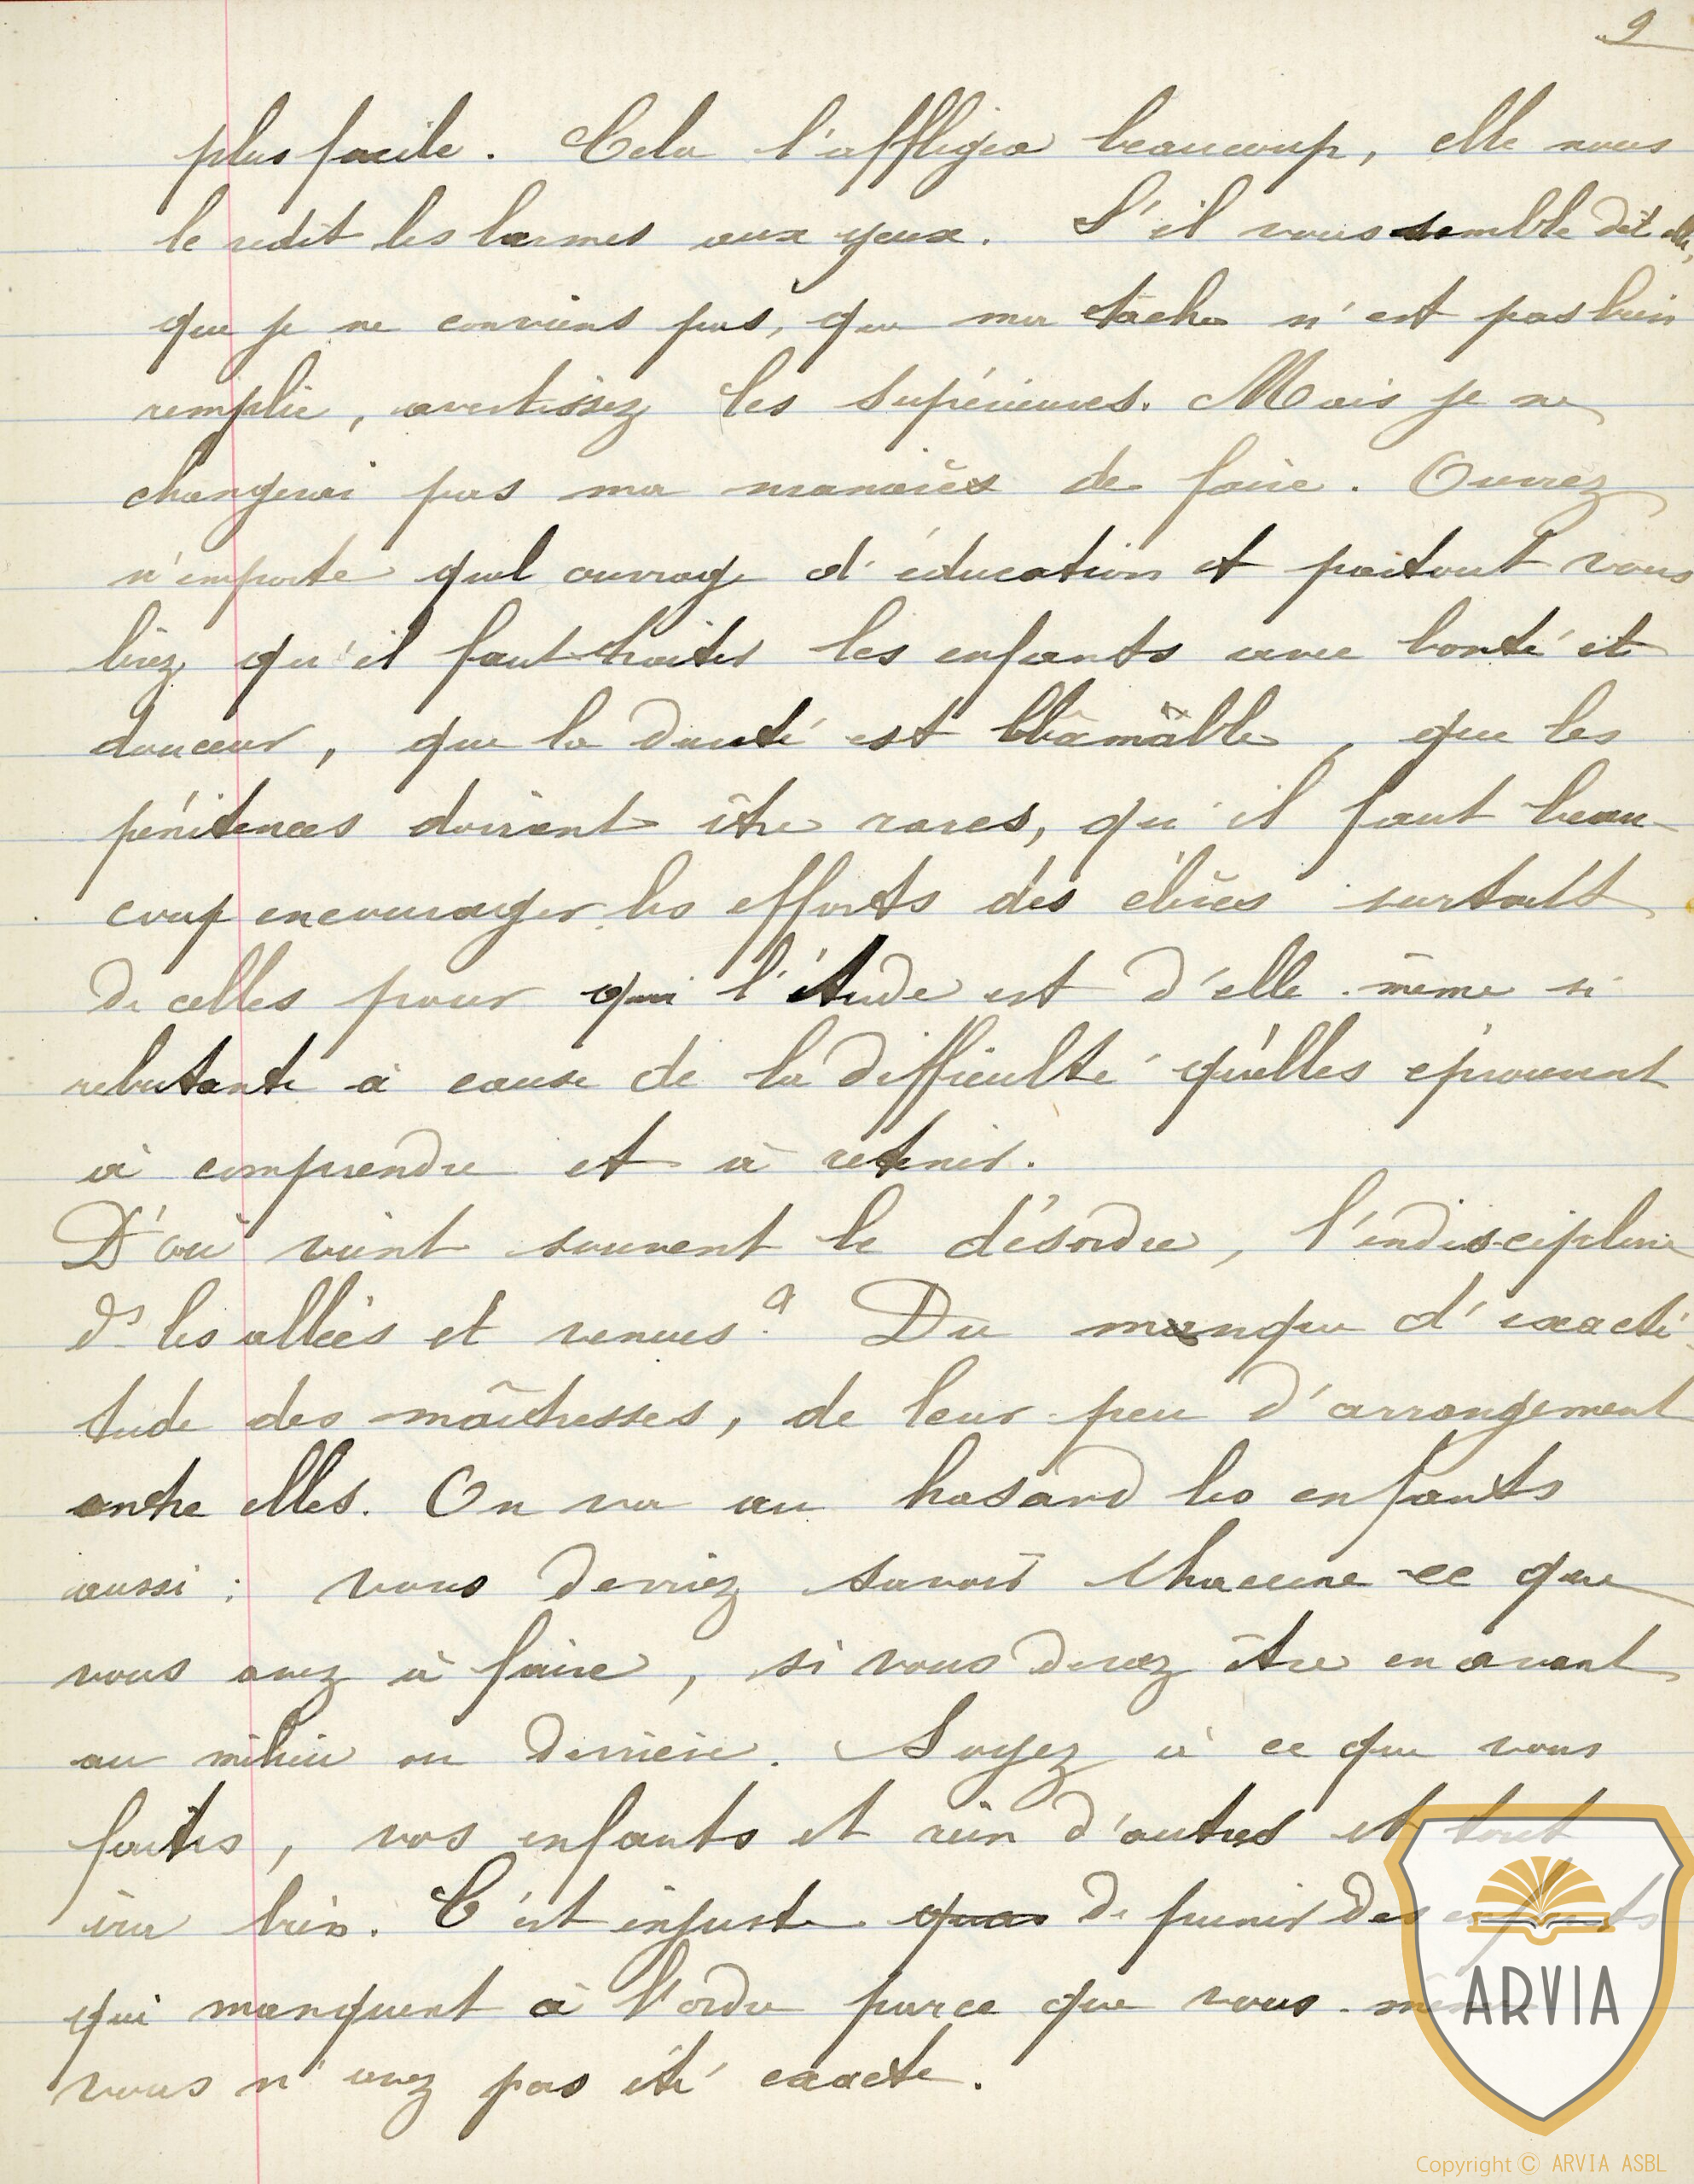 9
plus facile. Cela l'affligea beaucoup, elle nous
le redit les larmes aux yeux. S'il vous semble dit elle,
que je ne conviens pas, que ma tâche n'est pas bien
remplie, avertissez les Supérieures. Mais je ne
changerai pas ma manière de faire. Ouvrez
n'importe quel ouvrage d'éducation et partout vous
lirez qu'il faut traiter les enfants avec bonté et
douceur, que la dureté est blâmable, que les
pénitences doivent être rares, qu'il faut beau-
coup encourager les efforts des élèves surtout
de celles pour qui l'étude est d'elle-même si
rebutante à cause de la difficulté qu'elles éprouvent
à comprendre et à retenir.
D'où vient souvent le désordre, l'indiscipline
ds les allées et venues? Du manque d'exacti-
tude des maîtresses, de leur peu d'arrangement
entre elles. On va au hasard les enfants
aussi : vous devriez savoir chacune ce que
vous avez à faire, si vous devez être en avant
au milieu ou derrière. Soyez à ce que vous
faites, vos enfants et rien d'autres et tout
ira bien. C'est injuste que de punir des enfants
qui manquent à l'ordre parce que vous-même
vous n'avez pas été exacte.
ARVIA
Copyright © ARVIA ASBL